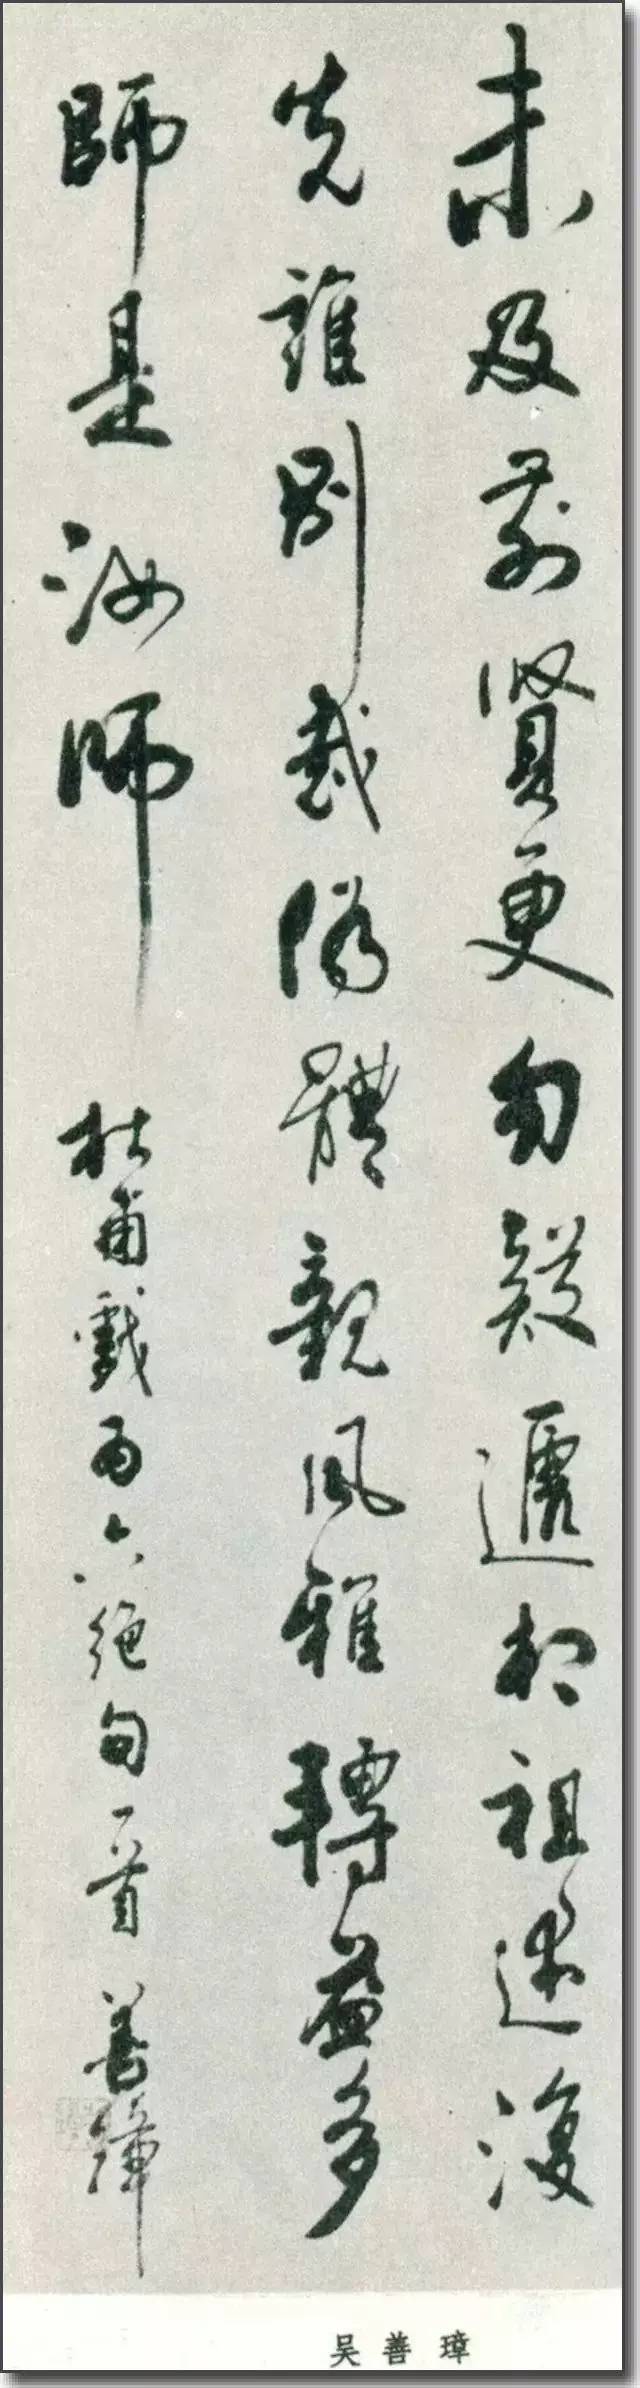 未及前賢更勿疑遞相祖述復
先誰別裁偽體親風雅轉益多
師是汝師 杜甫戲為六絕句一首 善璋
吴善璋